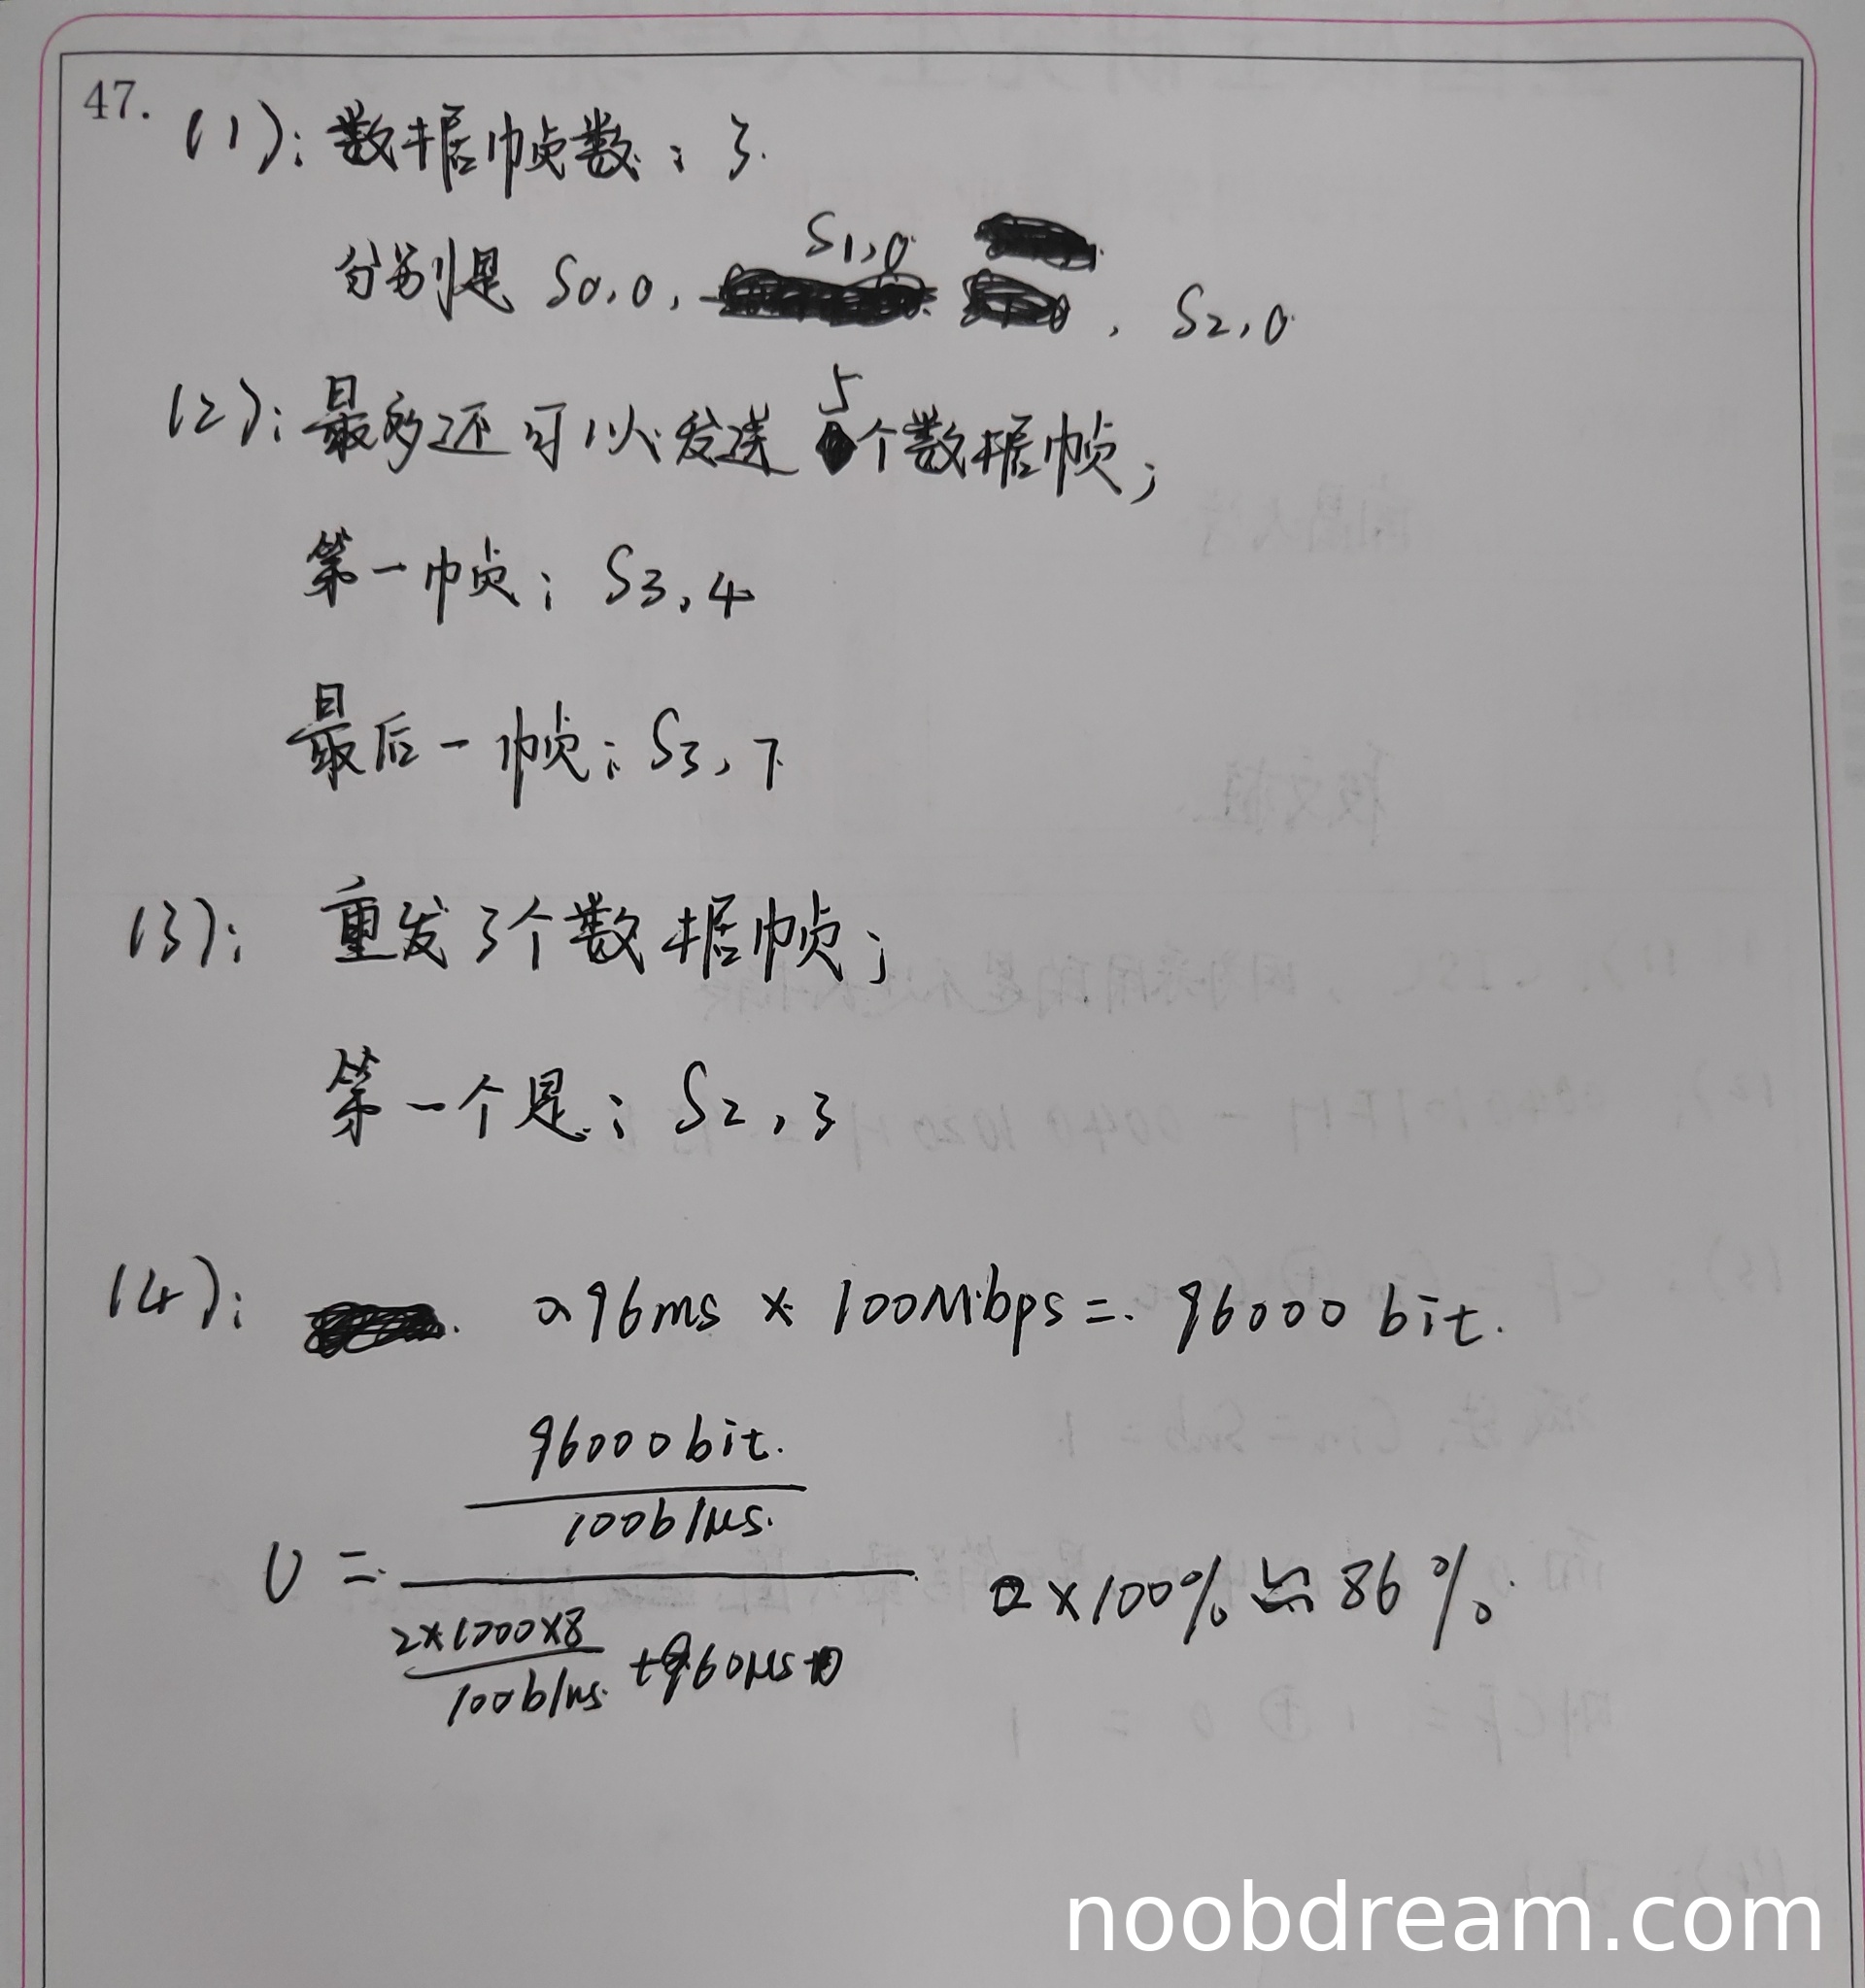 47.
(1): 数据帧数: 3.
分别是 S0,0, S1,0, S2,0
(2): 最多还可以发送5个数据帧;
第一帧: S3,4
最后一帧: S3,7
(3): 重发3个数据帧;
第一个是: S2,3
(4): 0.96ms × 100Mbps = 96000 bit.
96000 bit.
100b/μs.
U = × 100% ≈ 86%
2×1500×8
100b/μs. + 960μs
noobdream.com